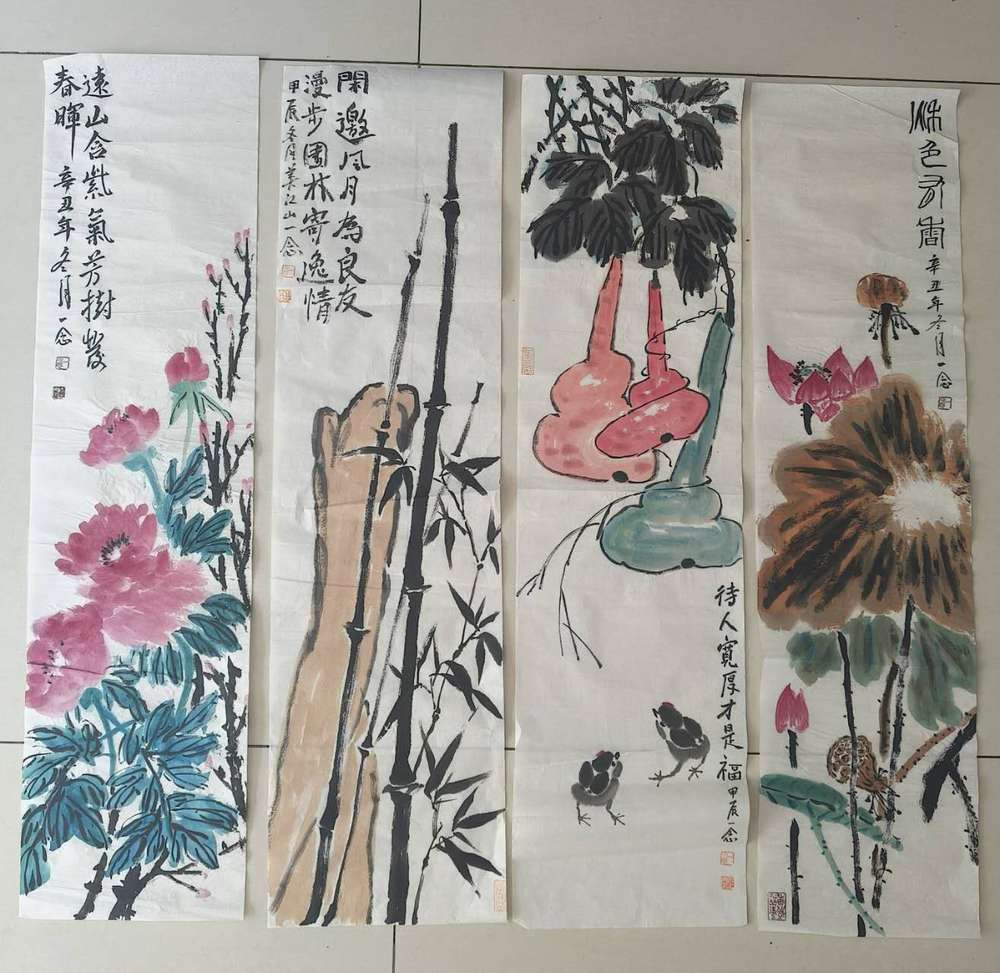 遠山含紫氣芳樹發
春暉
辛丑年冬月一念
閑邀风月為良友
漫步園林寄逸情
甲辰冬月 江山一念
待人寬厚才是福
甲辰一念
色
辛丑年冬月一念